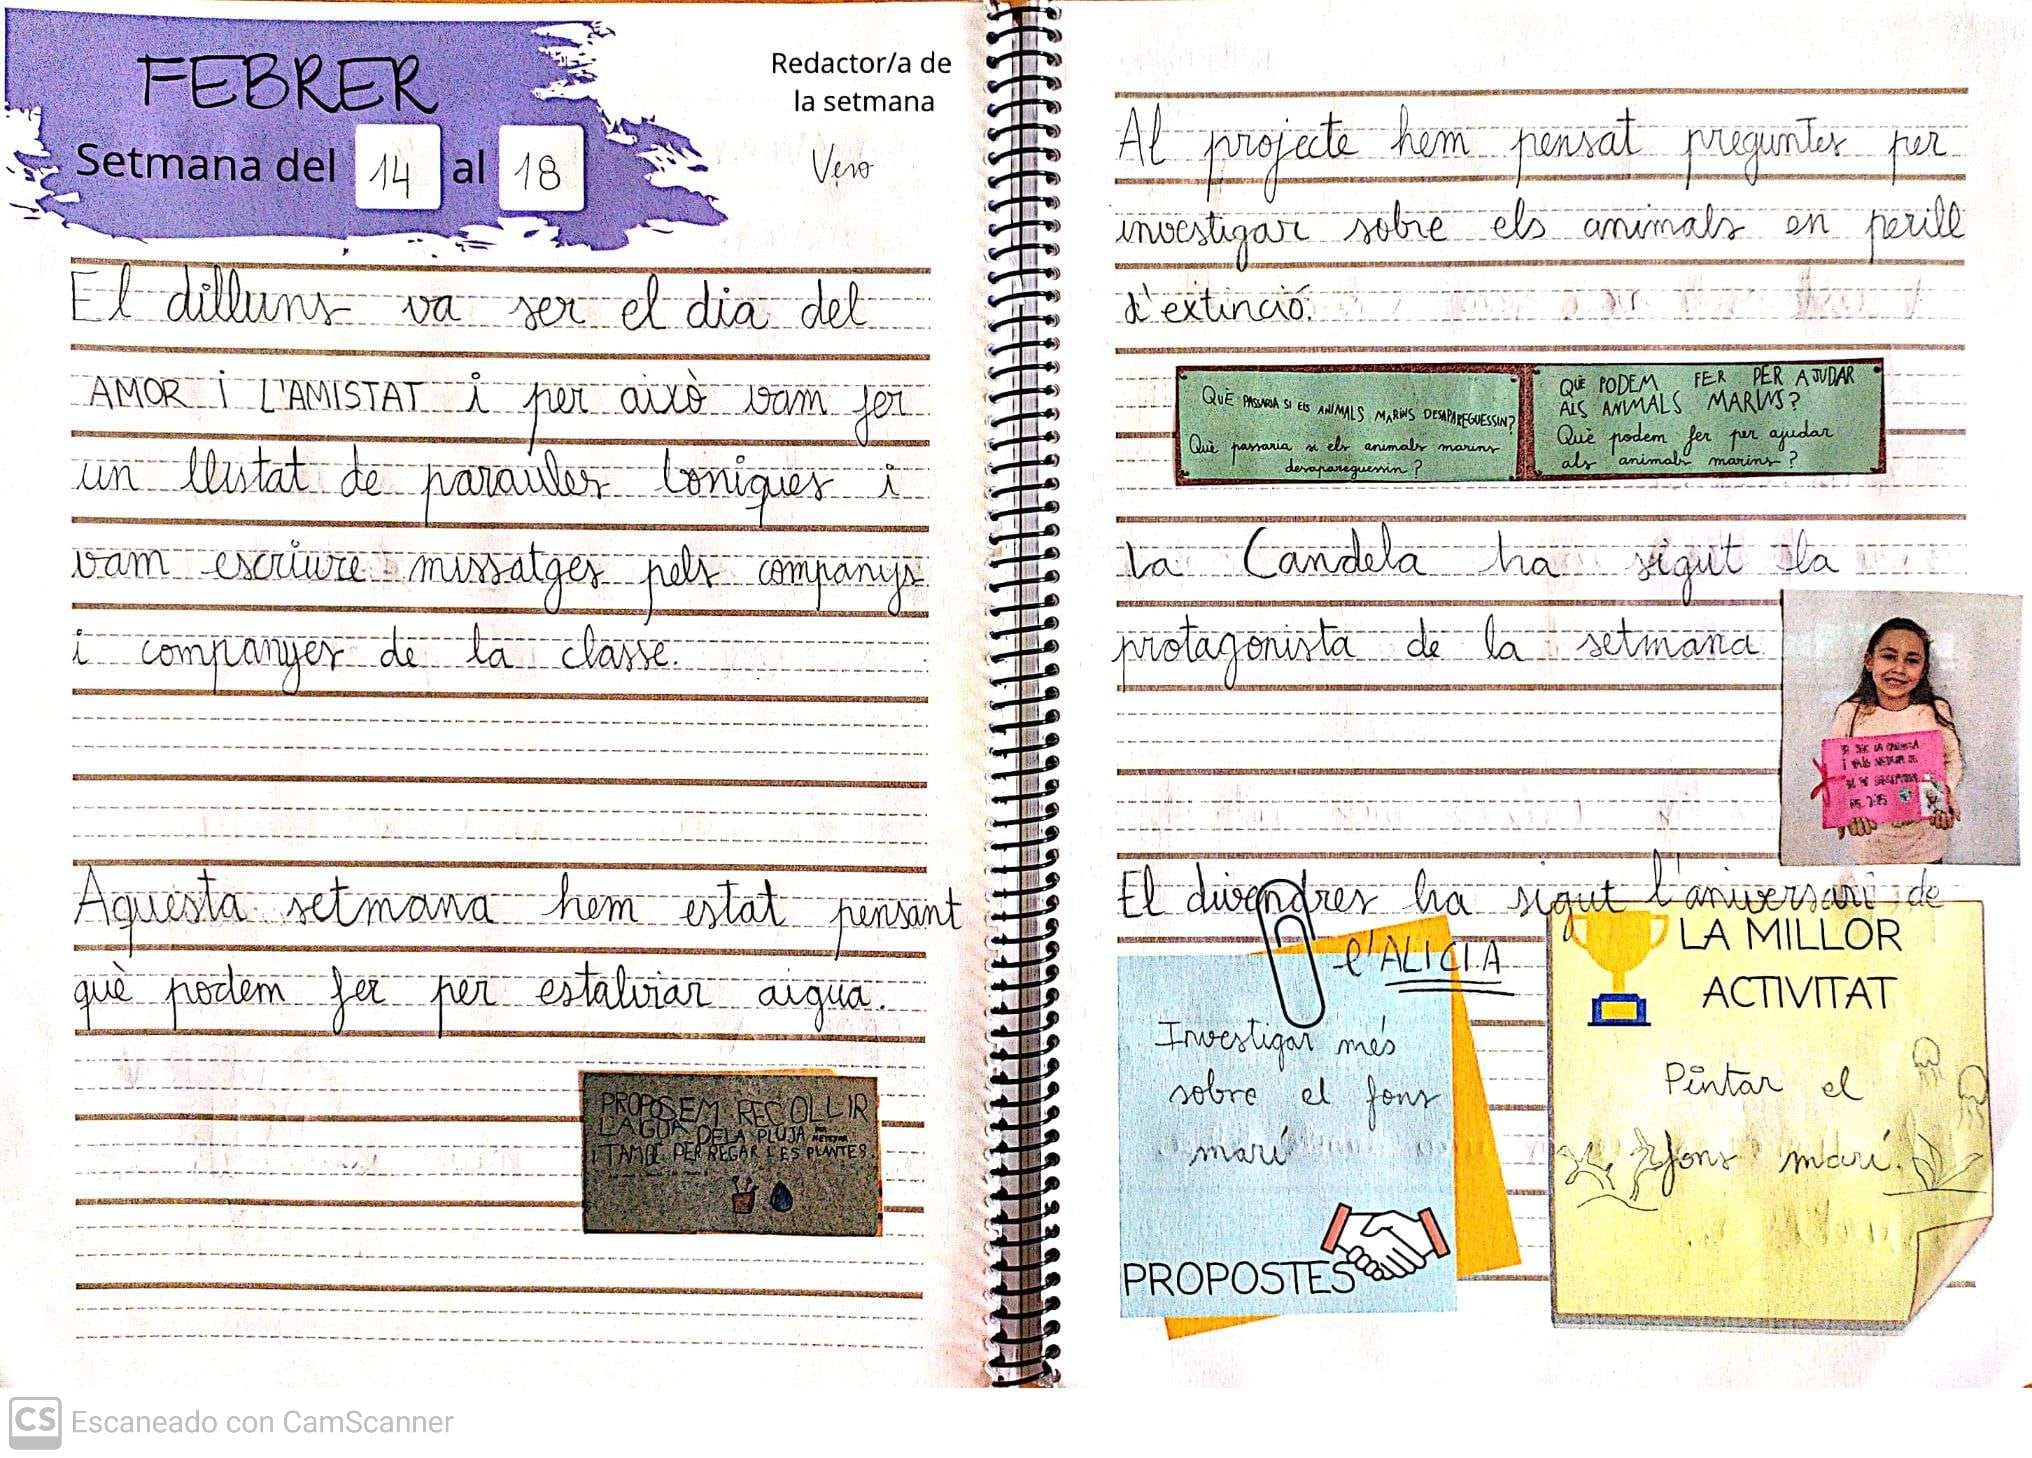 FEBRER
Setmana del 14 al 18
Redactor/a de
la setmana
Vero
El dilluns va ser el dia del
AMOR i L'AMISTAT i per això vam fer
un llistat de paraules boniques i
vam escriure missatges pels companys
i companyes de la classe.
Aquesta setmana hem estat pensant
què podem fer per estalviar aigua.
PROPOSEM RECOLLIR
L'AGUA DE LA PLUJA
I TAMBÉ PER REGAR LES PLANTES.
Al projecte hem pensat preguntes per
investigar sobre els animals en perill
d'extinció.
QUÈ PASSARIA SI ELS ANIMALS MARINS DESAPAREGUESSIN?
Què passaria si els animals marins
desapareguessin?
QUÈ PODEM FER PER AJUDAR
ALS ANIMALS MARINS?
Què podem fer per ajudar
als animals marins?
La Candela ha sigut la
protagonista de la setmana
El divendres ha sigut l'aniversari de
l'ALICIA
Investigar més
sobre el fons
marí
PROPOSTES
LA MILLOR
ACTIVITAT
Pintar el
fons marí.
CS Escaneado con CamScanner